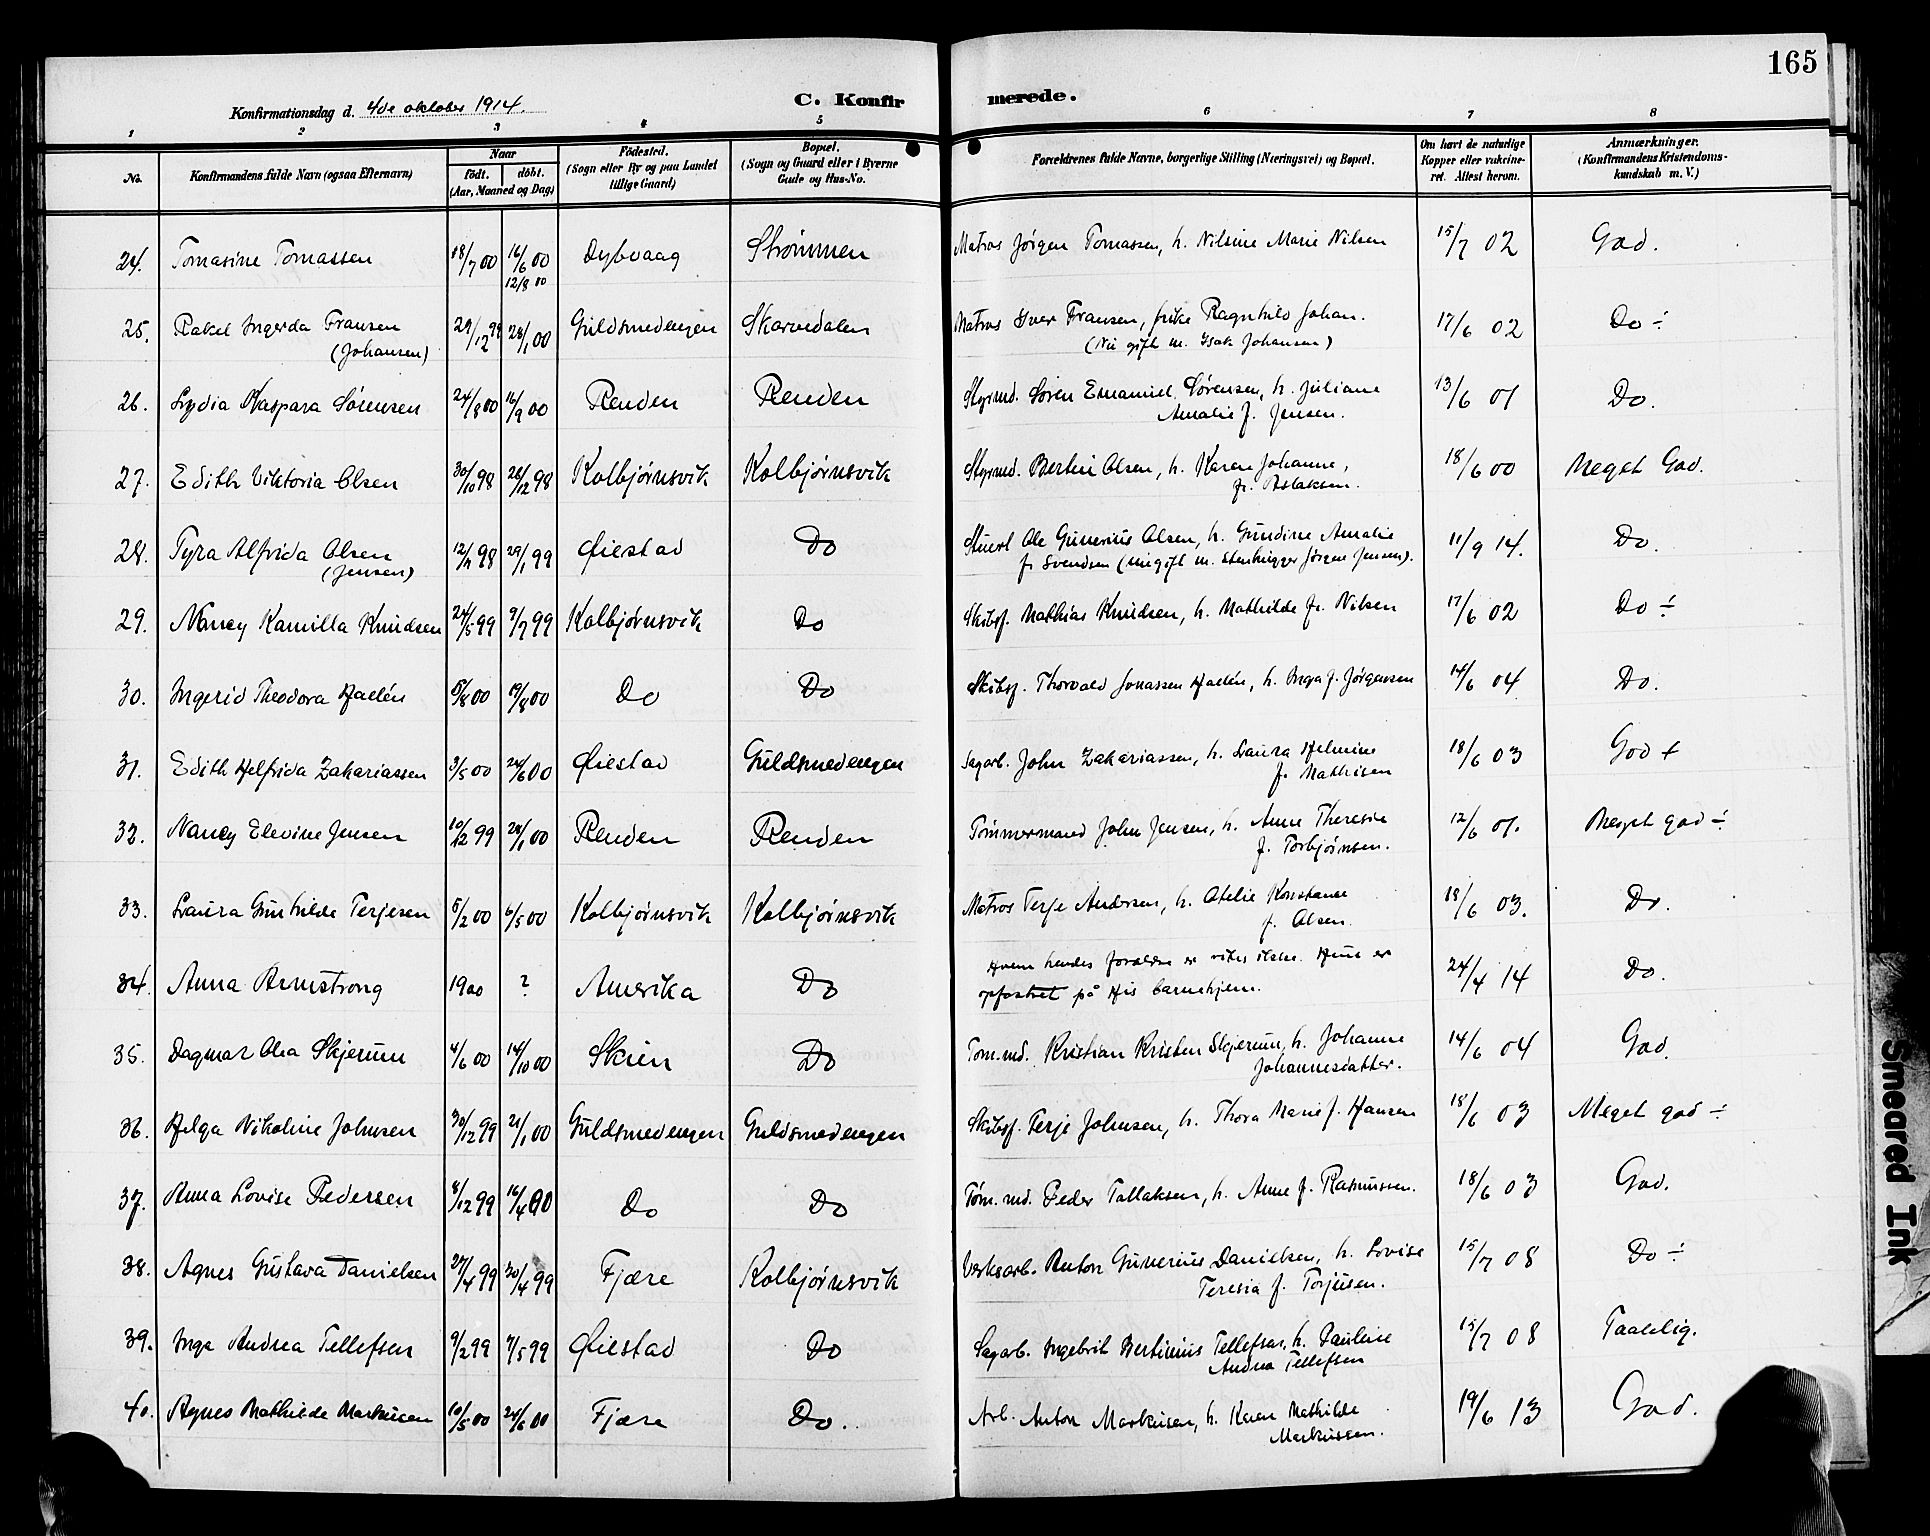 165
Konfirmationsdag d. 4de oktober 1914.
C. Konfirmerede.
1 2 3 4 5 6 7 8
No. Konfirmandens fulde Navn (ogsaa Efternavn) Naar født. døbt. (Aar, Maaned og Dag) Fødested. (Sogn eller By og paa Landet tillige Gaard) Bopæl. (Sogn og Gaard eller i Byerne Gade og Hus-No. Forældrenes fulde Navne, borgerlige Stilling (Næringsvei) og Bopæl. Om havt de naturlige Kopper eller vakcineret. Attest herom. Anmærkninger. (Konfirmandens Kristendomskundskab m. V.)
24. Tomasine Tomassen 18/7 00 16/6 00 Dybvaag Strømmen Matros Jørgen Tomassen, h. Nilsine Marie Nilsen 15/7 02 God.
12/8 00
25. Rakel Ingerda Fransen 29/12 99 28/1 00 Guldsmedengen Skarvedalen Matros Iver Fransen, frike Ragnhild Johan. 17/6 02 Do ÷
(Johansen) (Nu gift m. Isak Johansen)
26. Lydia Kaspara Sørensen 24/8 00 16/9 00 Renden Renden Styrmd. Søren Emanuel Sørensen, h. Juliane 13/6 01 Do.
Amalie f. Jensen.
27. Edith Viktoria Olsen 30/10 98 28/12 98 Kolbjørnsvik Kolbjørnsvik Styrmd. Bertin Olsen, h. Karen Johanne, 18/6 00 Meget God.
f. Aslaksen.
28. Tyra Alfrida Olsen 12/2 98 29/1 99 Øiestad Do Stuert Ole Gunerius Olsen, h. Gundine Amalie 11/9 14. Do.
(Jensen) f. Svendsen (nu gift m. Stenhugger Jørgen Jensen).
29. Nancy Kamilla Knudsen 24/5 99 9/7 99 Kolbjørnsvik Do Skibsf. Mathias Knudsen, h. Mathilde f. Nilsen 17/6 02 Do ÷
30. Ingerid Theodora Haelén 5/8 00 19/8 00 Do Do Skibsf. Thorvald Jonassen Haelén, h. Inga f. Jørgensen 14/6 04 Do.
31. Edith Helfrida Zakariassen 3/5 00 24/6 00 Øiestad Guldsmedengen Sagarb. John Zakariassen, h. Laura Helmine 18/6 03 God +
f. Mathisen
32. Nancy Elevine Jensen 10/12 99 28/1 00 Renden Renden Tømmermand John Jensen, h. Anne Theresie 12/6 01. Meget god ÷
f. Torbjørnsen.
33. Laura Gunhilde Terjesen 5/2 00 6/5 00 Kolbjørnsvik Kolbjørnsvik Matros Terje Andersen, h. Otelie Konstanse 18/6 03. Do.
f. Olsen.
34. Anna Armstrong 1900 ? Amerika Do Hvem hendes forældre er vites ikke. Hun er 24/4 14 Do.
opfostret på His barnehjem.
35. Dagmar Olea Skjerum 4/6 00 14/10 00 Skien Do Tøm.md. Kristian Kristen Skjerum, h. Johanne 14/6 04 God.
Johannesdatter.
36. Helga Nikoline Johnsen 30/12 99 21/1 00 Guldsmedengen Guldsmedengen Skibsf. Terje Johnsen, h. Thora Marie f. Hansen 18/6 03 Meget god ÷
37. Anna Lovise Pedersen 8/12 99 16/4 00 Do Do Tøm. md. Peder Tallaksen, h. Anne f. Rasmussen. 18/6 03 God.
38. Agnes Gustava Danielsen 27/4 99 30/4 99 Fjære Kolbjørnsvik Verksarb. Anton Gunerius Danielsen, h. Lovise 15/7 08 Do ÷
Teresia f. Torjusen.
39. Inga Andrea Tellefsen 9/2 99 7/5 99 Øiestad Do Sagarb. Ingebrit Bertinius Tellefsen, h. Pauline 15/7 08 Taalelig.
Andrea Tellefsen
40. Agnes Mathilde Markusen 10/5 00 24/6 00 Fjære Do. Arb. Anton Markusen, h. Karen Mathilde 19/6 13 God.
Markussen.
Smeared Ink